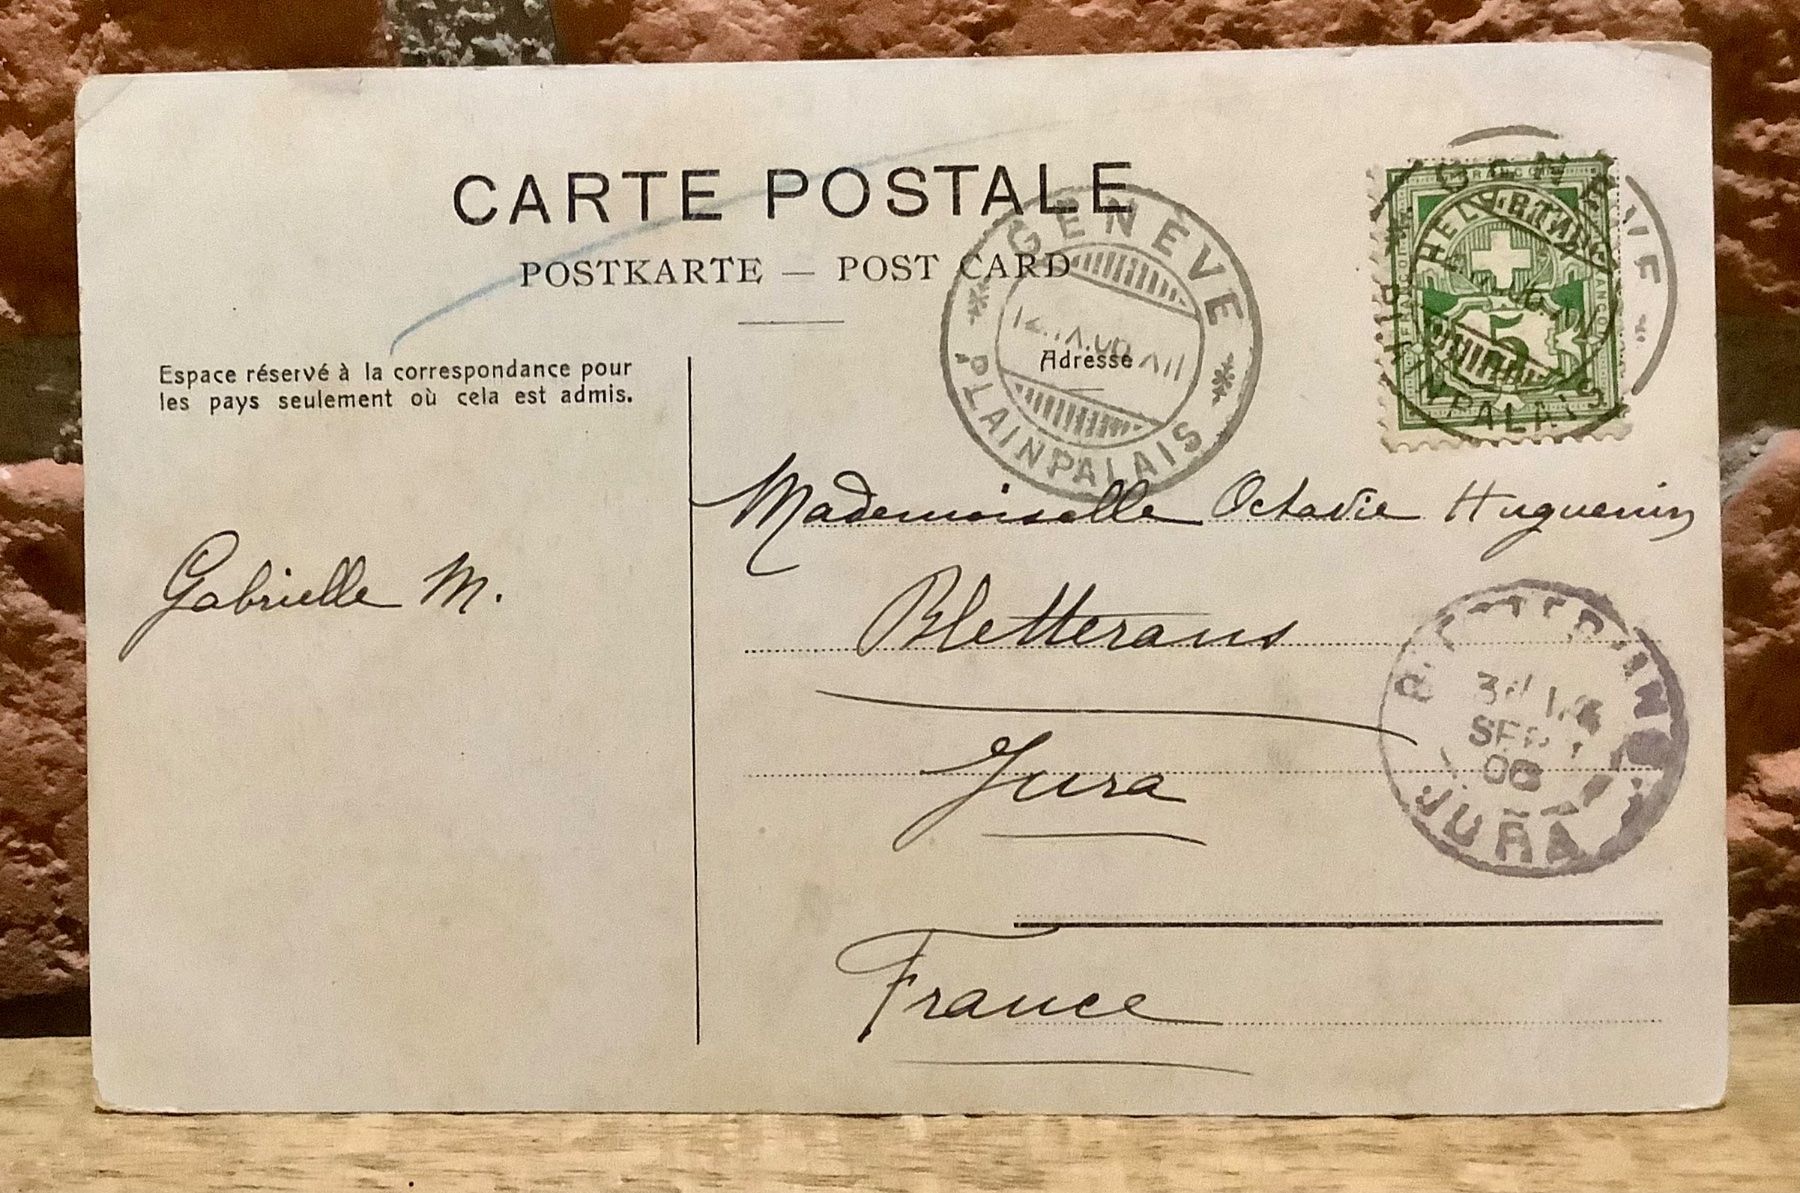 CARTE POSTALE
POSTKARTE — POST CARD
Espace réservé à la correspondance pour
les pays seulement où cela est admis.
Adresse
GENÈVE
PLAINPALAIS
HELVETIA
FRANCO
5
Gabrielle M.
Mademoiselle Octavie Huguenin
Bletterans
Jura
France
SEPT
06
JURA